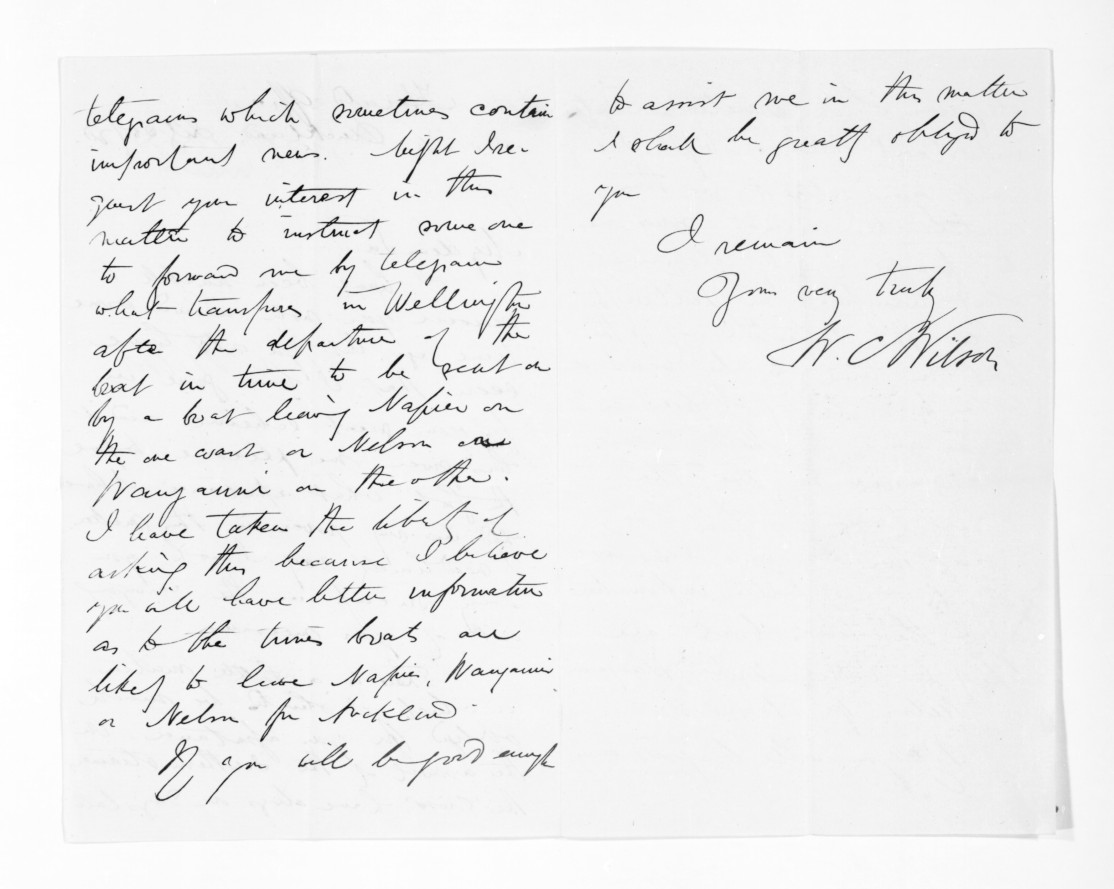 telegrams which sometimes contain
important news. Might I re-
quest your interest in this
matter to instruct some one
to forward me by telegram
what transpires in Wellington
after the departure of the
boat in time to be sent on
by a boat leaving Napier on
the one coast or Nelson and
Wanganui on the other.
I have taken the liberty of
asking this because I believe
you will have better information
as to the times boats are
likely to leave Napier, Wanganui
or Nelson for Auckland.
If you will be good enough
to assist me in this matter
I shall be greatly obliged to
you
I remain
Yours very truly
W. C. Wilson